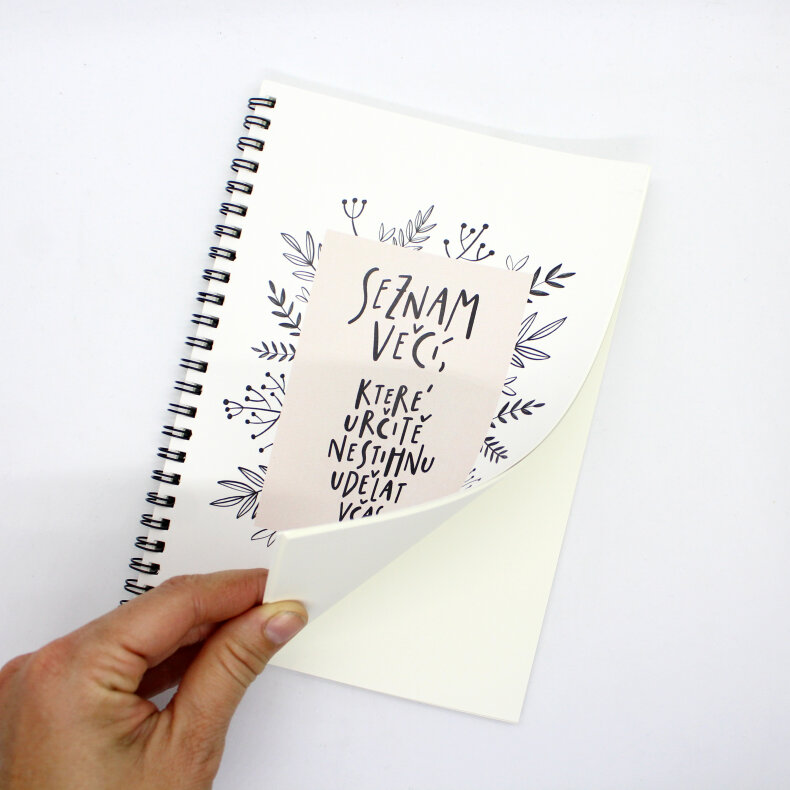 SEZNAM
VEČÍ,
KTERÉ
URČITĚ
NESTIHNU
UDĚLAT